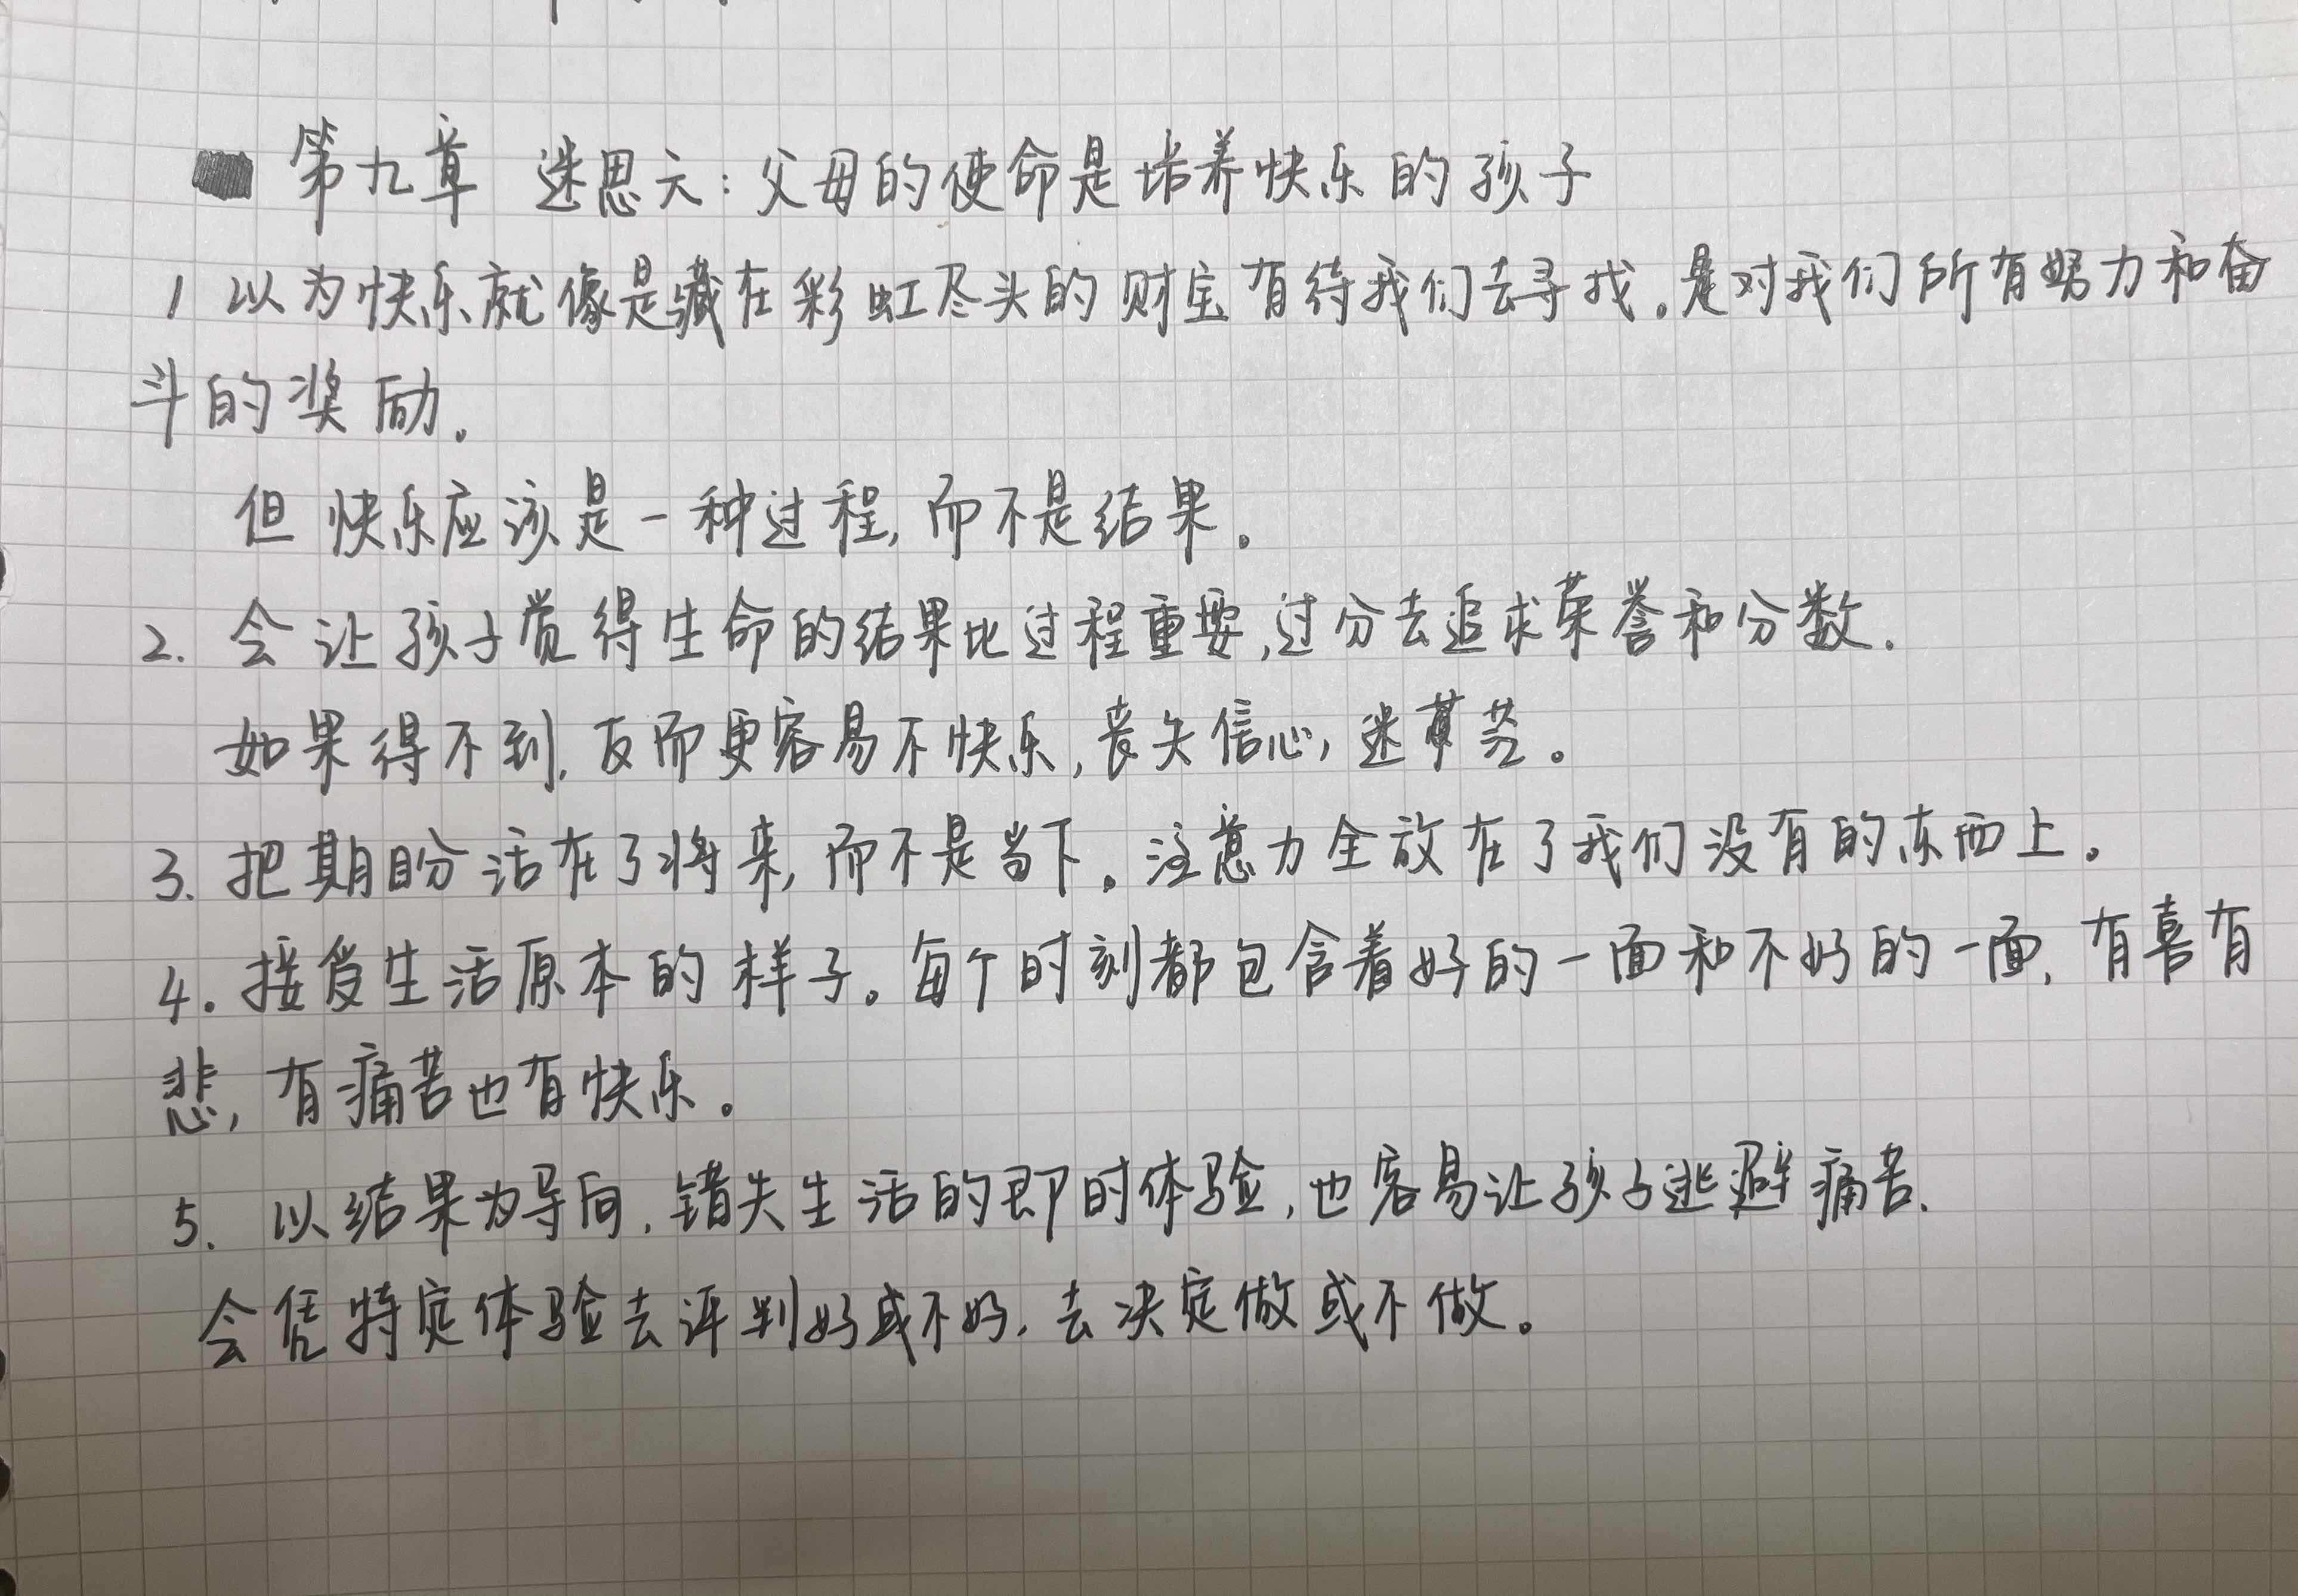 第九章 迷思六：父母的使命是培养快乐的孩子
1 以为快乐就像是藏在彩虹尽头的财宝有待我们去寻找。是对我们所有努力和奋
斗的奖励。
但快乐应该是一种过程，而不是结果。
2. 会让孩子觉得生命的结果比过程重要，过分去追求荣誉和分数.
如果得不到，反而更容易不快乐，丧失信心，迷茫。
3. 把期盼活在了将来，而不是当下。注意力全放在了我们没有的东西上。
4. 接受生活原本的样子。每个时刻都包含着好的一面和不好的一面，有喜有
悲，有痛苦也有快乐。
5. 以结果为导向，错失生活的即时体验，也容易让孩子逃避痛苦.
会凭特定体验去评判好或不好，去决定做或不做。